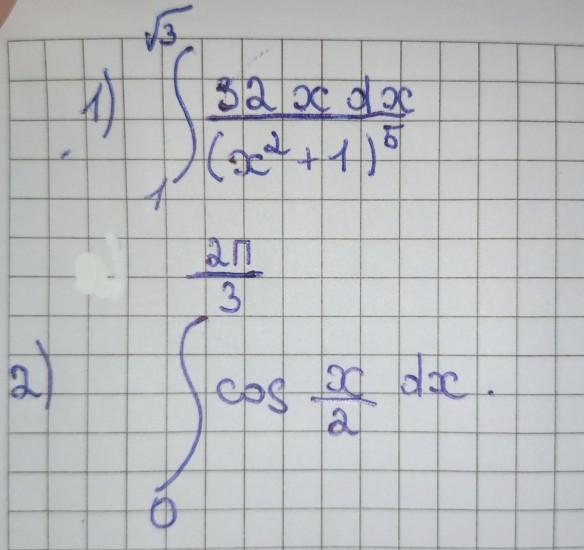 1) ∫₁^√3 32 x dx / (x² + 1)⁵
2) ∫₀^(2π/3) cos x/2 dx.